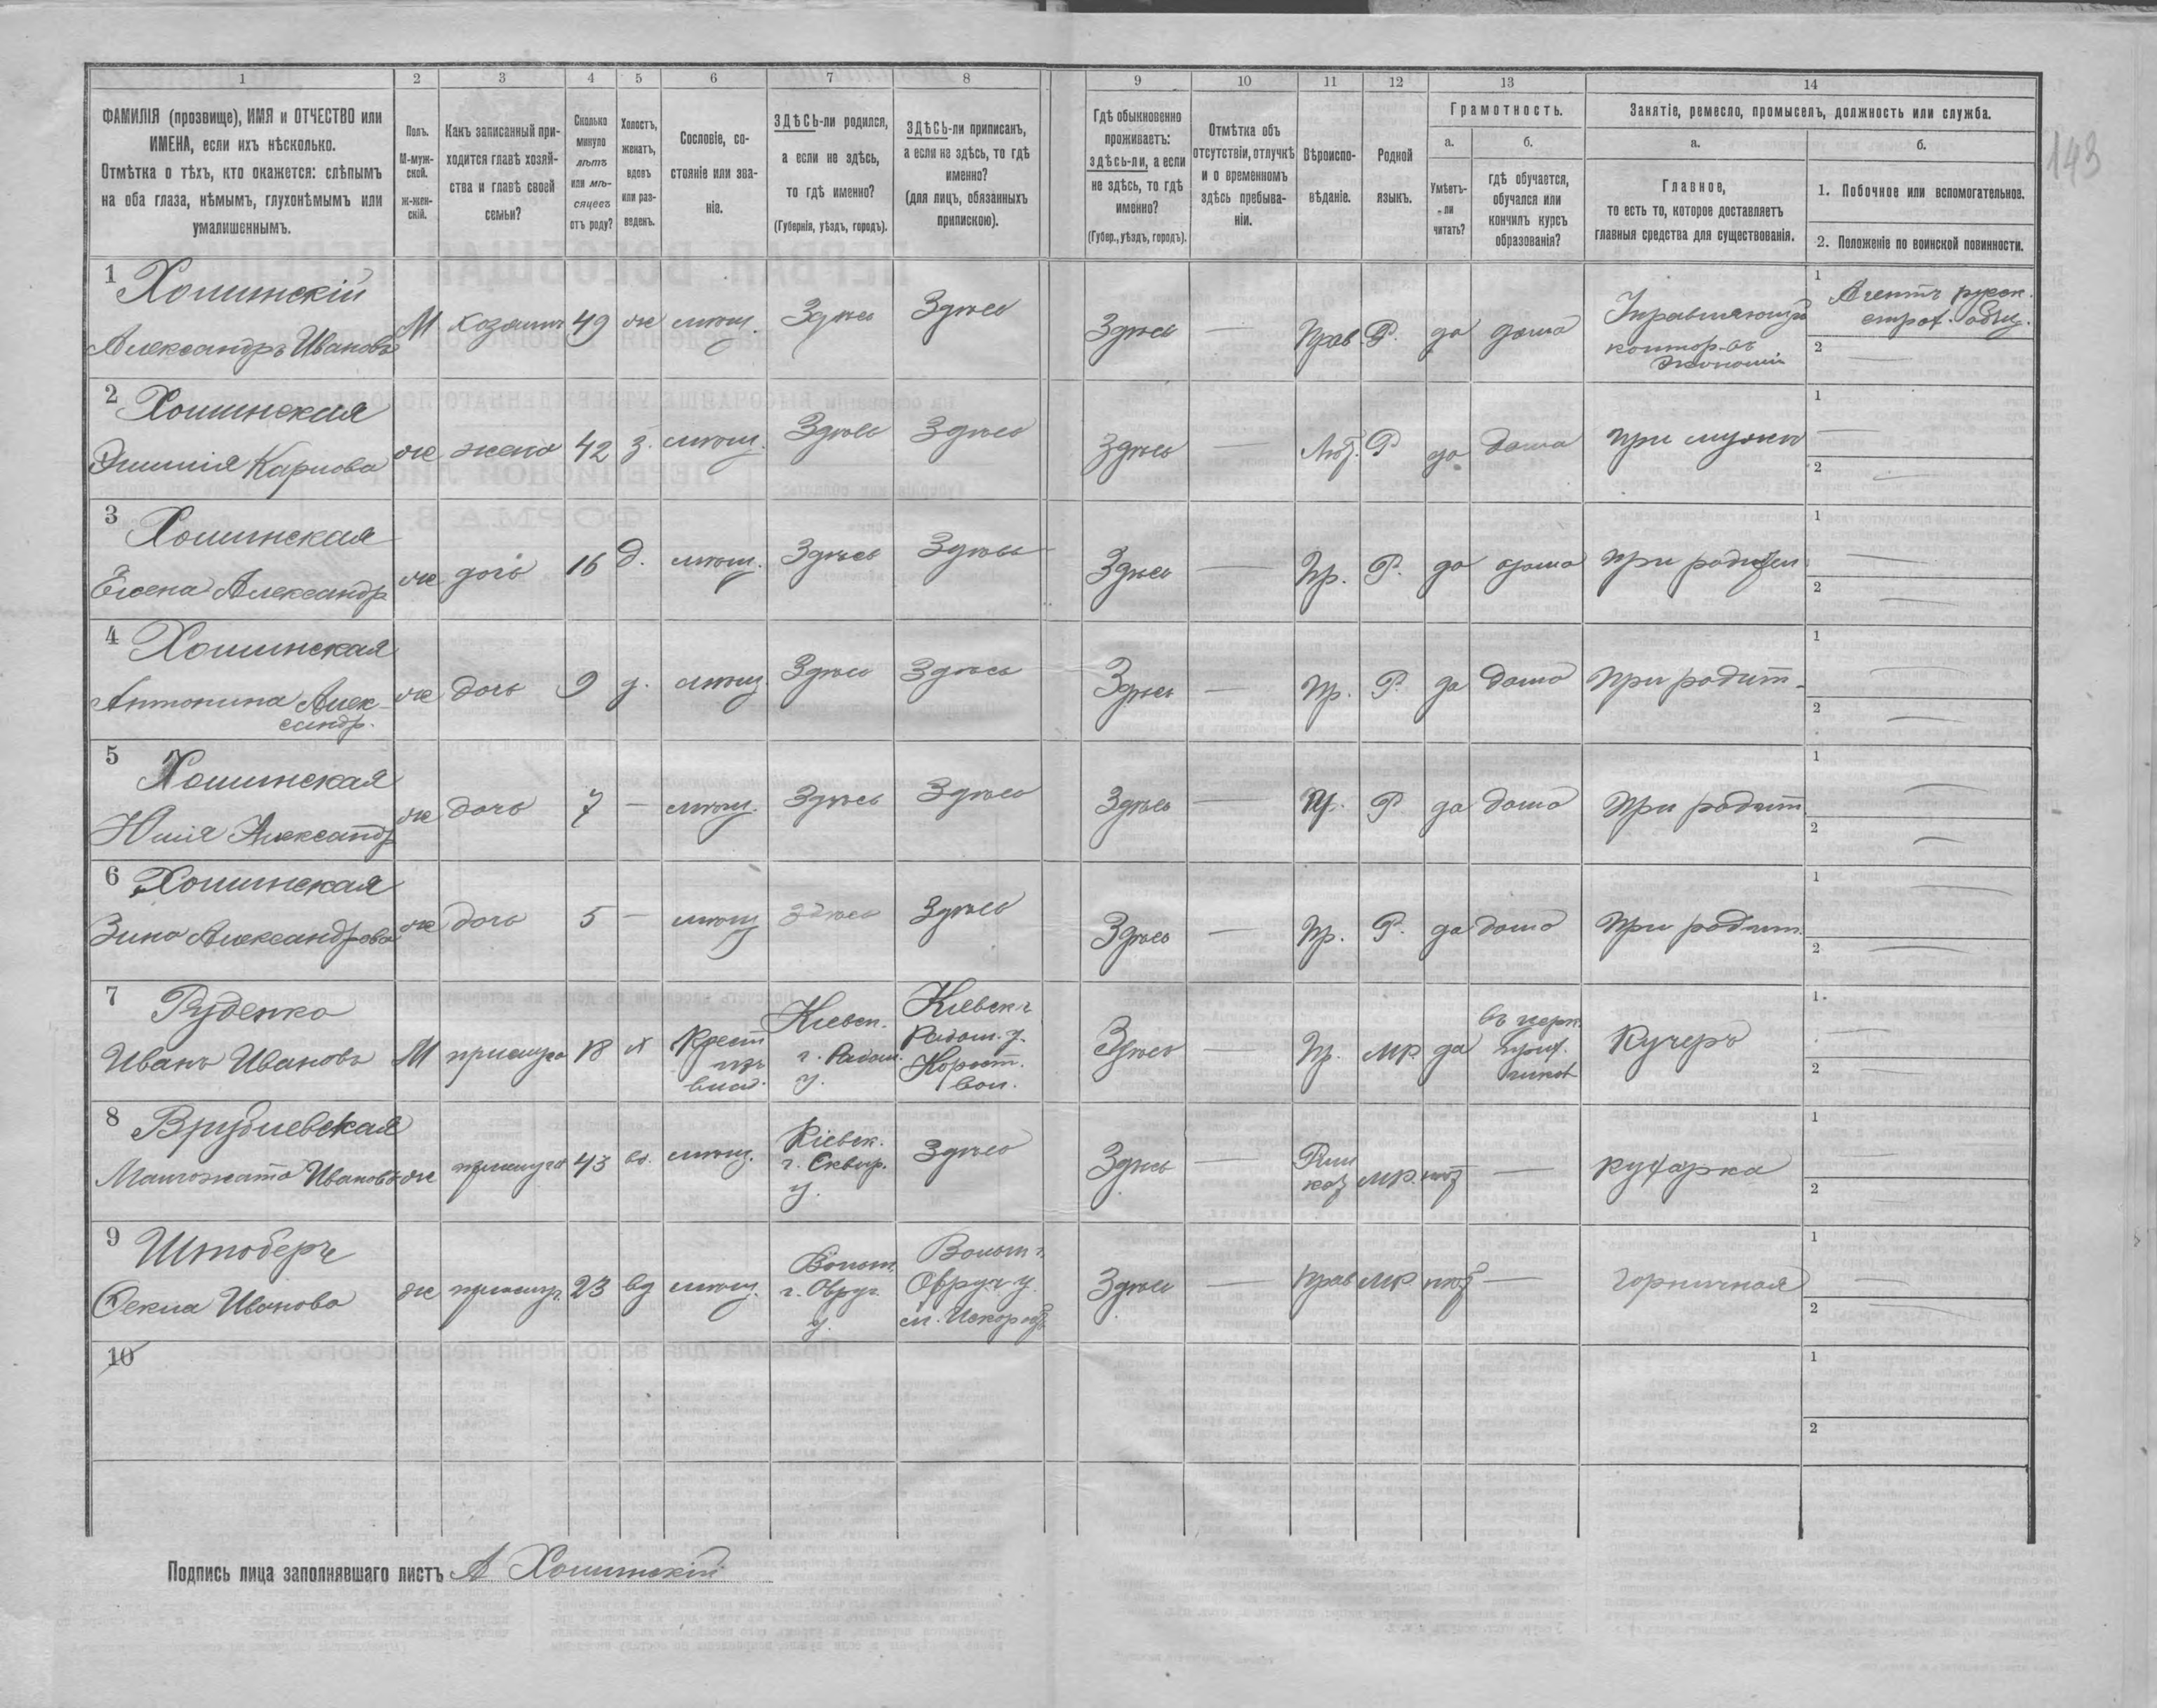 143
1 2 3 4 5 6 7 8 9 10 11 12 13 14
ФАМИЛІЯ (прозвище), ИМЯ и ОТЧЕСТВО или ИМЕНА, если ихъ нѣсколько.
Отмѣтка о тѣхъ, кто окажется: слѣпымъ на оба глаза, нѣмымъ, глухонѣмымъ или умалишеннымъ.
Полъ.
М-мужской.
ж-женскій.
Какъ записанный приходится главѣ хозяйства и главѣ своей семьи?
Сколько минуло лѣтъ или мѣсяцевъ отъ роду?
Холостъ, женатъ, вдовъ или разведенъ.
Сословіе, состояніе или званіе.
ЗДѢСЬ-ли родился, а если не здѣсь, то гдѣ именно?
(Губернія, уѣздъ, городъ).
ЗДѢСЬ-ли приписанъ, а если не здѣсь, то гдѣ именно?
(для лицъ, обязанныхъ припискою).
Гдѣ обыкновенно проживаетъ: здѣсь-ли, а если не здѣсь, то гдѣ именно?
(Губер., уѣздъ, городъ).
Отмѣтка объ отсутствіи, отлучкѣ и о временномъ здѣсь пребываніи.
Вѣроисповѣданіе.
Родной языкъ.
Грамотность.
а.
Умѣетъ-ли читать?
б.
гдѣ обучается, обучался или кончилъ курсъ образованія?
Занятіе, ремесло, промыселъ, должность или служба.
а.
Главное,
то есть то, которое доставляетъ главныя средства для существованія.
б.
1. Побочное или вспомогательное.
2. Положеніе по воинской повинности.
1 Холинскій
Александръ Ивановъ М хозяинъ 49 ж мѣщ. Здѣсь Здѣсь Здѣсь — Прав. Р. да дома Управляющій контор. въ Экономіи 1 Агентъ русск. страх. общ. 2 —
2 Холинская
Эмилія Карлова ж жена 42 з. мѣщ. Здѣсь Здѣсь Здѣсь — Лют. Р да дома при мужѣ 1 — 2 —
3 Холинская
Елена Александр ж дочь 16 д. мѣщ. Здѣсь Здѣсь Здѣсь — Пр. Р. да дома при родител 1 — 2 —
4 Холинская
Антонина Александр. ж дочь 9 д. мѣщ Здѣсь Здѣсь Здѣсь — Пр. Р. да дома при родит. 1 — 2 —
5 Холинская
Юлія Александр ж дочь 7 — мѣщ. Здѣсь Здѣсь Здѣсь — Пр. Р. да дома при родит 1 — 2 —
6 Холинская
Зина Александрова ж дочь 5 — мѣщ Здѣсь Здѣсь Здѣсь — Пр. Р. да дома при родит. 1 — 2 —
7 Руденко
Иванъ Ивановъ М прислуга 18 х Крест изъ влад. Кіевск. г. Радом. у. Кіевск г Радом. у. Корост. вол. Здѣсь — Пр. мр. да въ церк. прих. Кучеръ 1 — 2 —
8 Врублевская
Малгожата Иванова ж прислуга 43 вд. мѣщ. Кіевск. г. Сквир. у. Здѣсь Здѣсь — Рим кат мр. нѣт — кухарка 1 — 2 —
9 Штоберъ
Фекла Иванова ж прислуг. 23 вд мѣщ. Волын. г. Овруч. у. Волын г. Овруч у. м. Искорость Здѣсь — Прав мр нѣт — горничная 1 — 2
10 1 2
Подпись лица заполнявшаго листъ А Холинскій